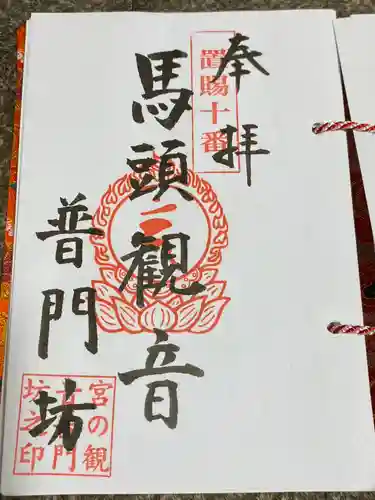 奉拝
置賜十番
馬頭観音
普門坊
宮の観
門
坊之印